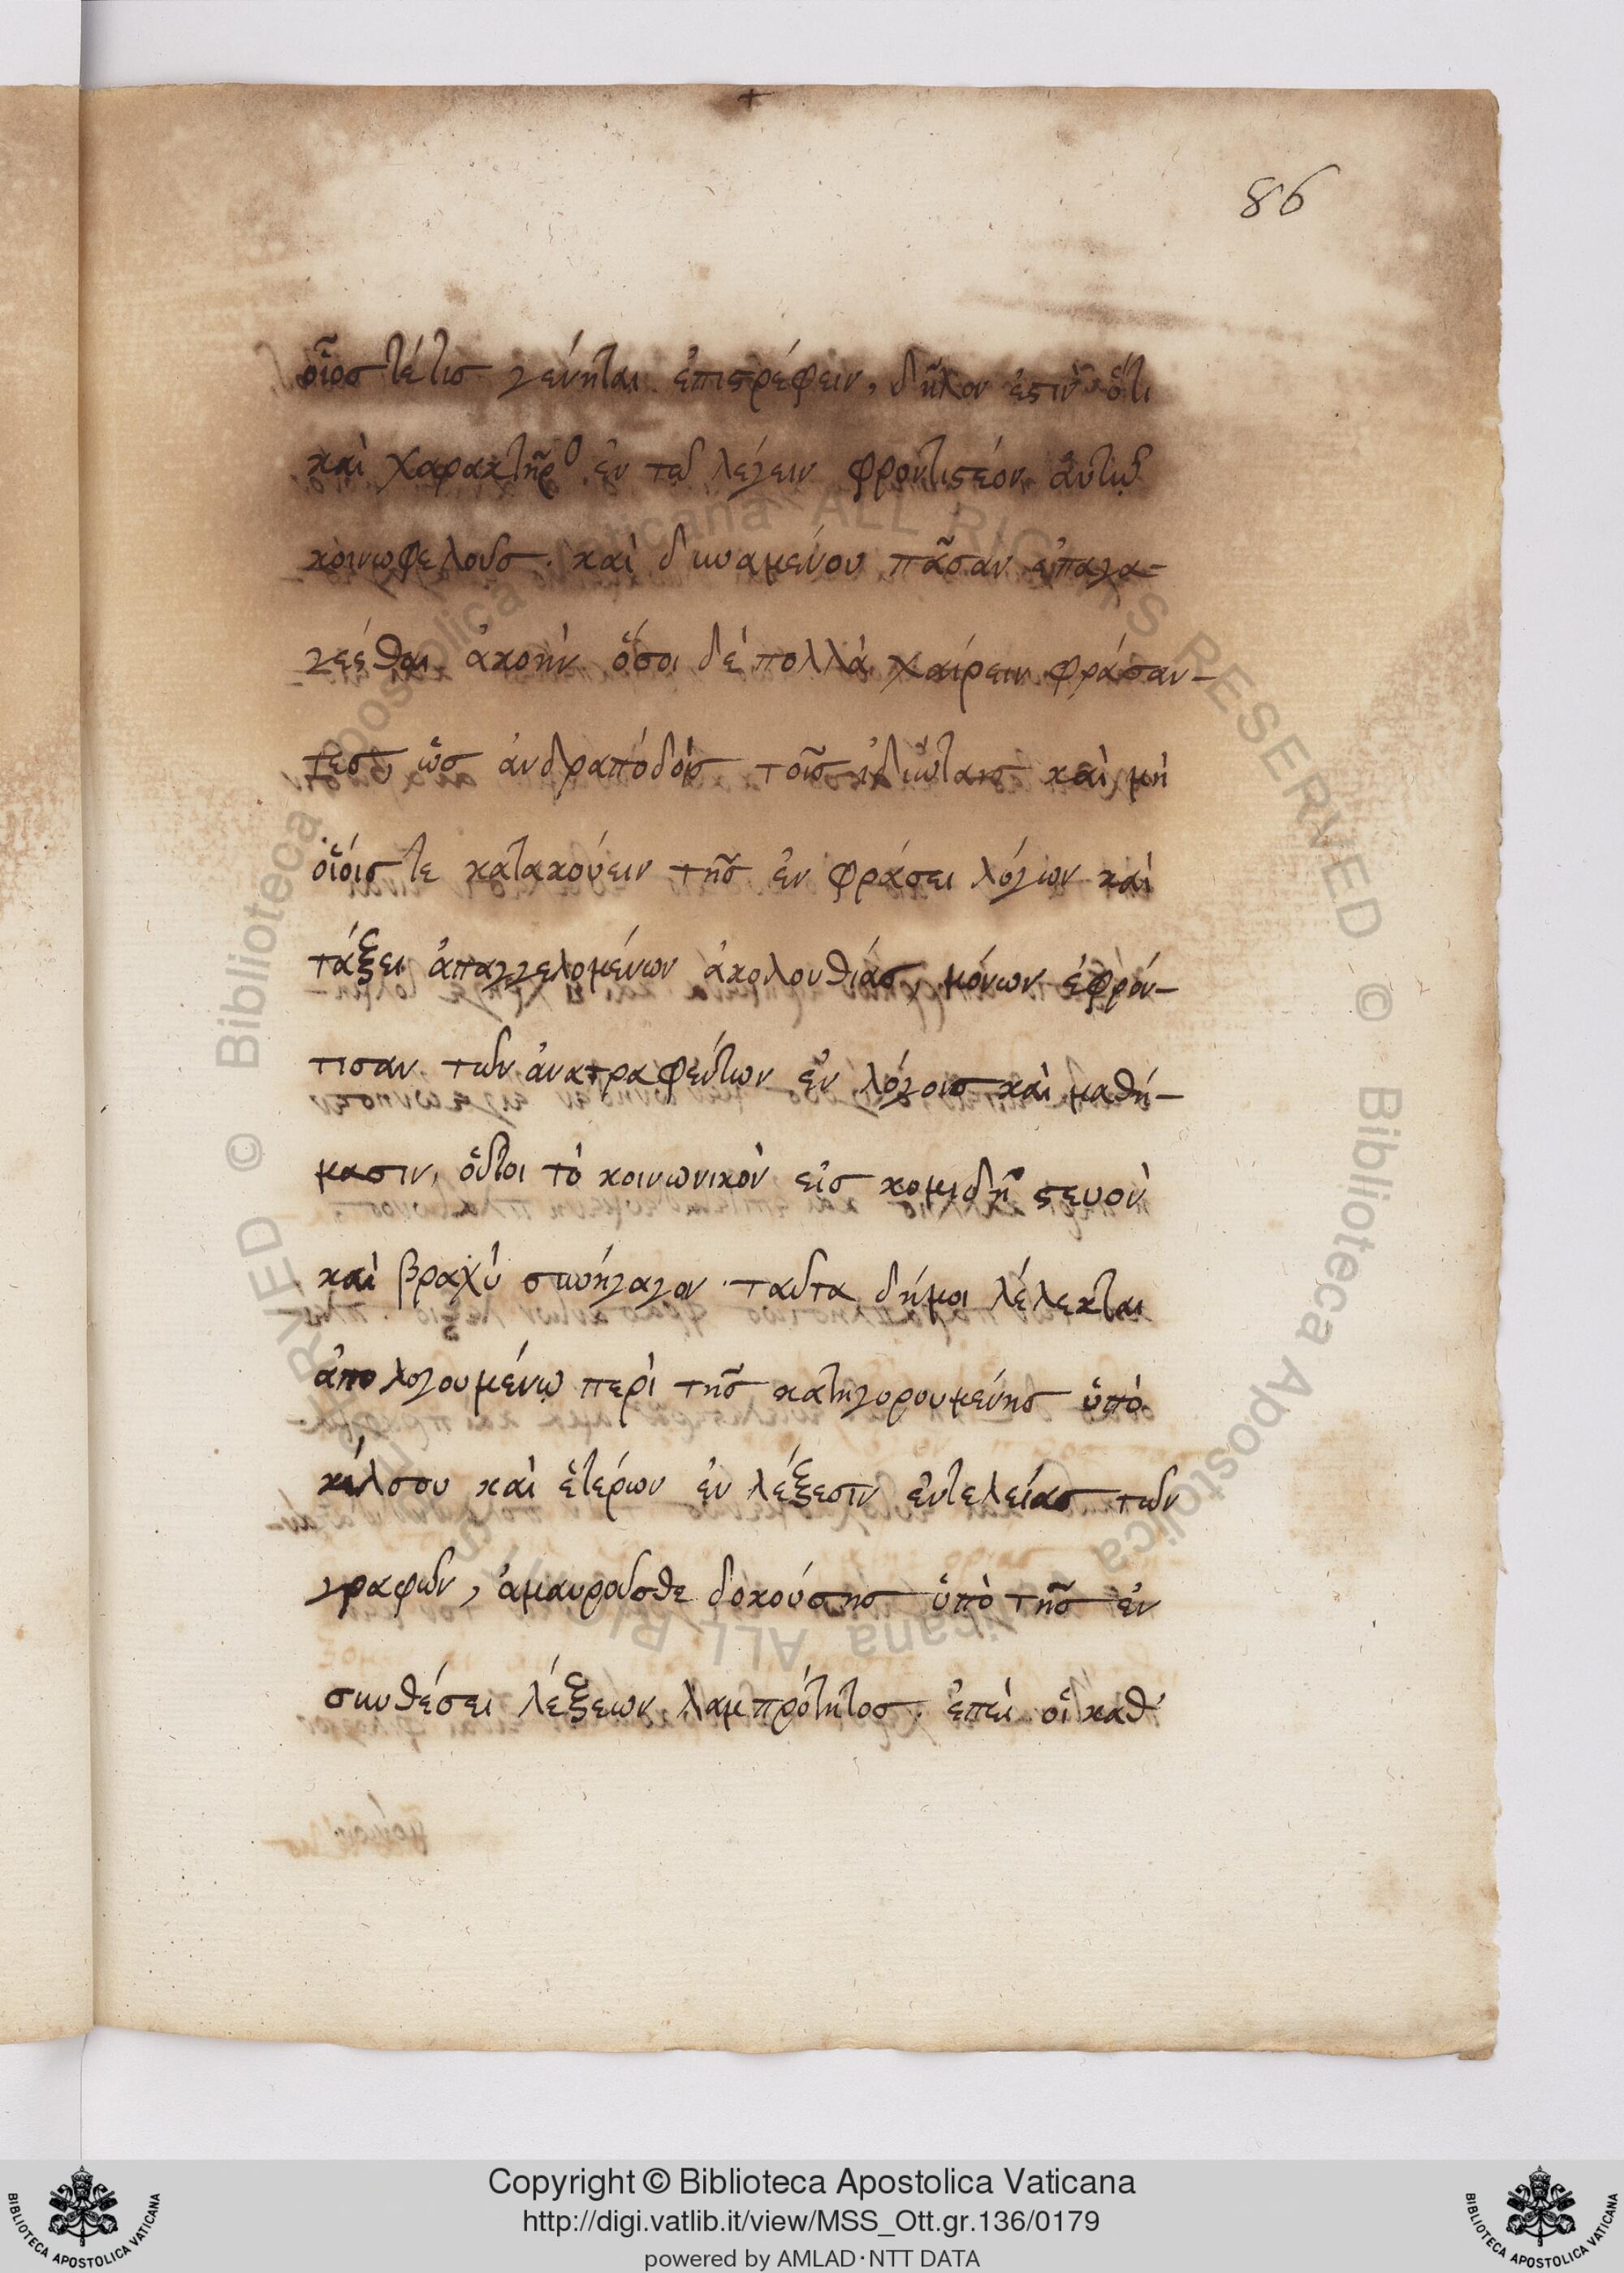 86
οἷός τέ τις γένηται ἐπιστρέφειν, δῆλον ἐστὶν ὅτι
καὶ χαρακτῆρο ἐν τῶ λέγειν φροντιστέον ἀυτῶ
κοινωφελοῦς. καὶ δυναμένου πᾶσαν ἐπαγα-
γέσθαι ἀκοὴν. ὅσοι δὲ πολλὰ χαίρειν φράσαν-
τες, ὡς ἀνδραπόδοις τοῖς ἰδιώταις καὶ μὴ
οἵοις τε κατακούειν τῆς ἐν φράσει λόγων καὶ
τάξει ἀπαγγελομένων ἀκολουθίας, μόνων ἐφρόν-
τισαν τῶν ἀνατραφέντων ἐν λόγοις καὶ μαθή-
μασιν, οὗτοι τὸ κοινωνικὸν εἰς κομιδῆ στενὸν
καὶ βραχὺ συνήγαγον. ταῦτα δή μοι λέλεκται
ἀπολογουμένῳ περὶ τῆς κατηγορουμένης ὑπὸ
κέλσου καὶ ἑτέρων ἐν λέξεσιν εὐτελείας τῶν
γραφῶν, ἀμαυροῦσθε δοκούσης ὑπὸ τῆς ἐν
συνθέσει λέξεων λαμπρότητος. ἐπεὶ οἱ καθ'
Copyright © Biblioteca Apostolica Vaticana
http://digi.vatlib.it/view/MSS_Ott.gr.136/0179
powered by AMLAD·NTT DATA